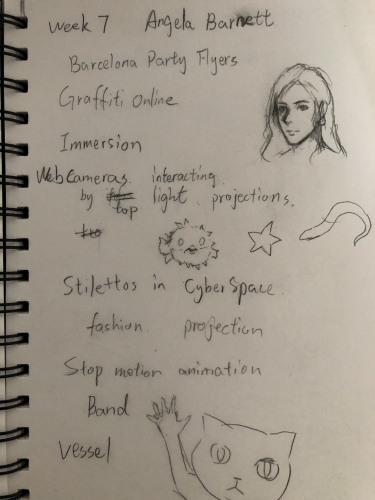 Week 7 Angela Barnett
Barcelona Party Flyers
Graffiti Online
Immersion
Web Cameras. interacting
by light projections.
top
Stilettos in CyberSpace.
fashion. projection
Stop motion animation
Band
Vessel